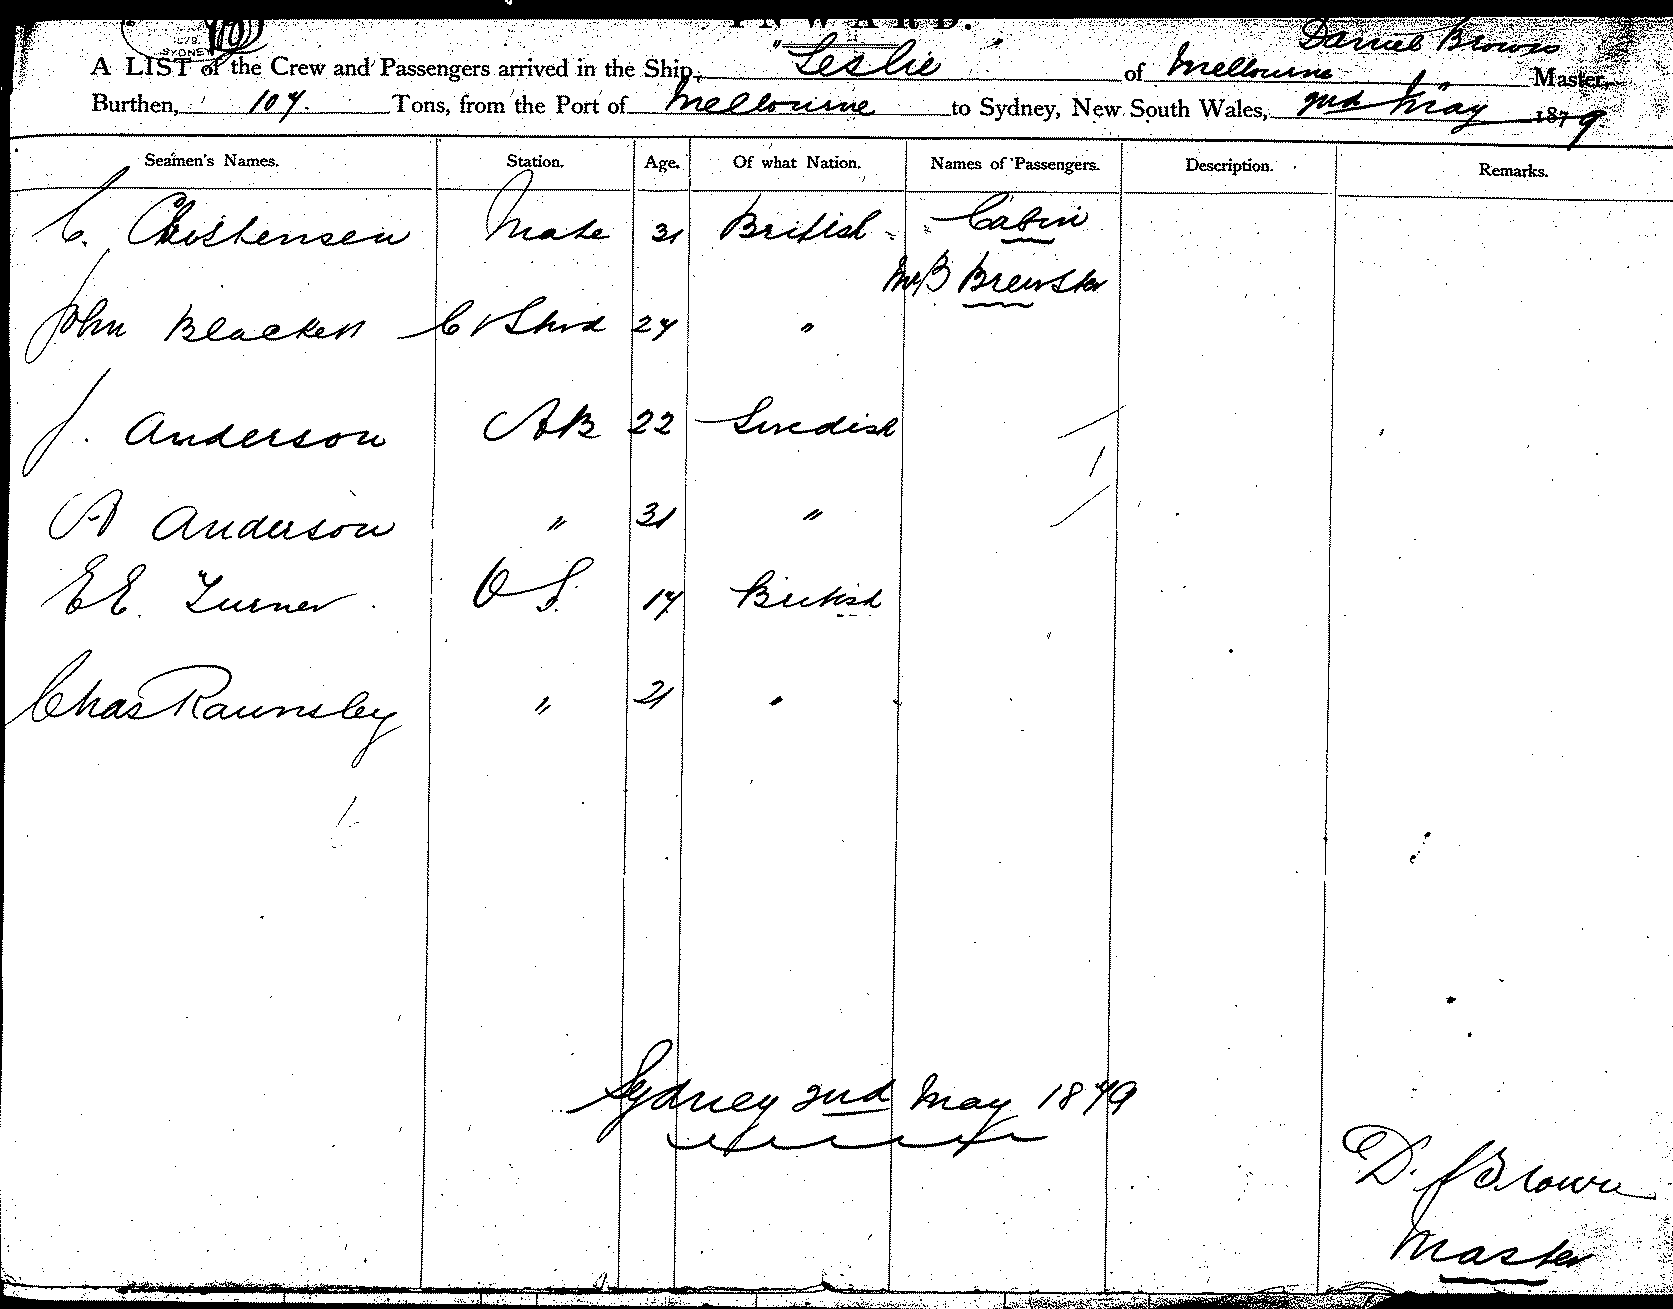 INWARD.
SYDNEY
Daniel Brown
A LIST of the Crew and Passengers arrived in the Ship, "Leslie" of Melbourne Master,
Burthen, 107. Tons, from the Port of Melbourne to Sydney, New South Wales, 2nd May 1879
Seamen's Names. Station. Age. Of what Nation. Names of Passengers. Description. Remarks.
C. Christensen Mate 31 British Cabin
Mr B Brewster
John Blackett C & Stwd 27 "
J. Anderson AB 22 Swedish
A Anderson " 31 "
EE. Turner OS. 17 British
Chas Rawnsley " 21 "
Sydney 2nd May 1879
D. J Brown
Master